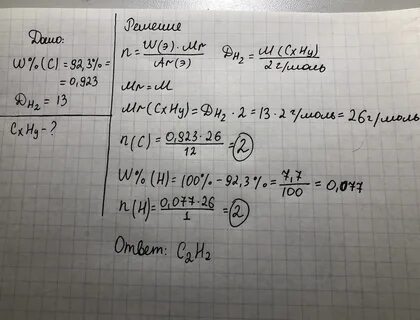 Дано:
W%(C) = 92,3% =
= 0,923
D H₂ = 13
CxHy - ?
Решение
n = W(э) · Mr / Ar(э)
D H₂ = M(CxHy) / 2 г/моль
Mr = M
Mr(CxHy) = D H₂ · 2 = 13 · 2 г/моль = 26 г/моль
n(C) = 0,923 · 26 / 12 = 2
W%(H) = 100% - 92,3% = 7,7 / 100 = 0,077
n(H) = 0,077 · 26 / 1 = 2
Ответ: C₂H₂